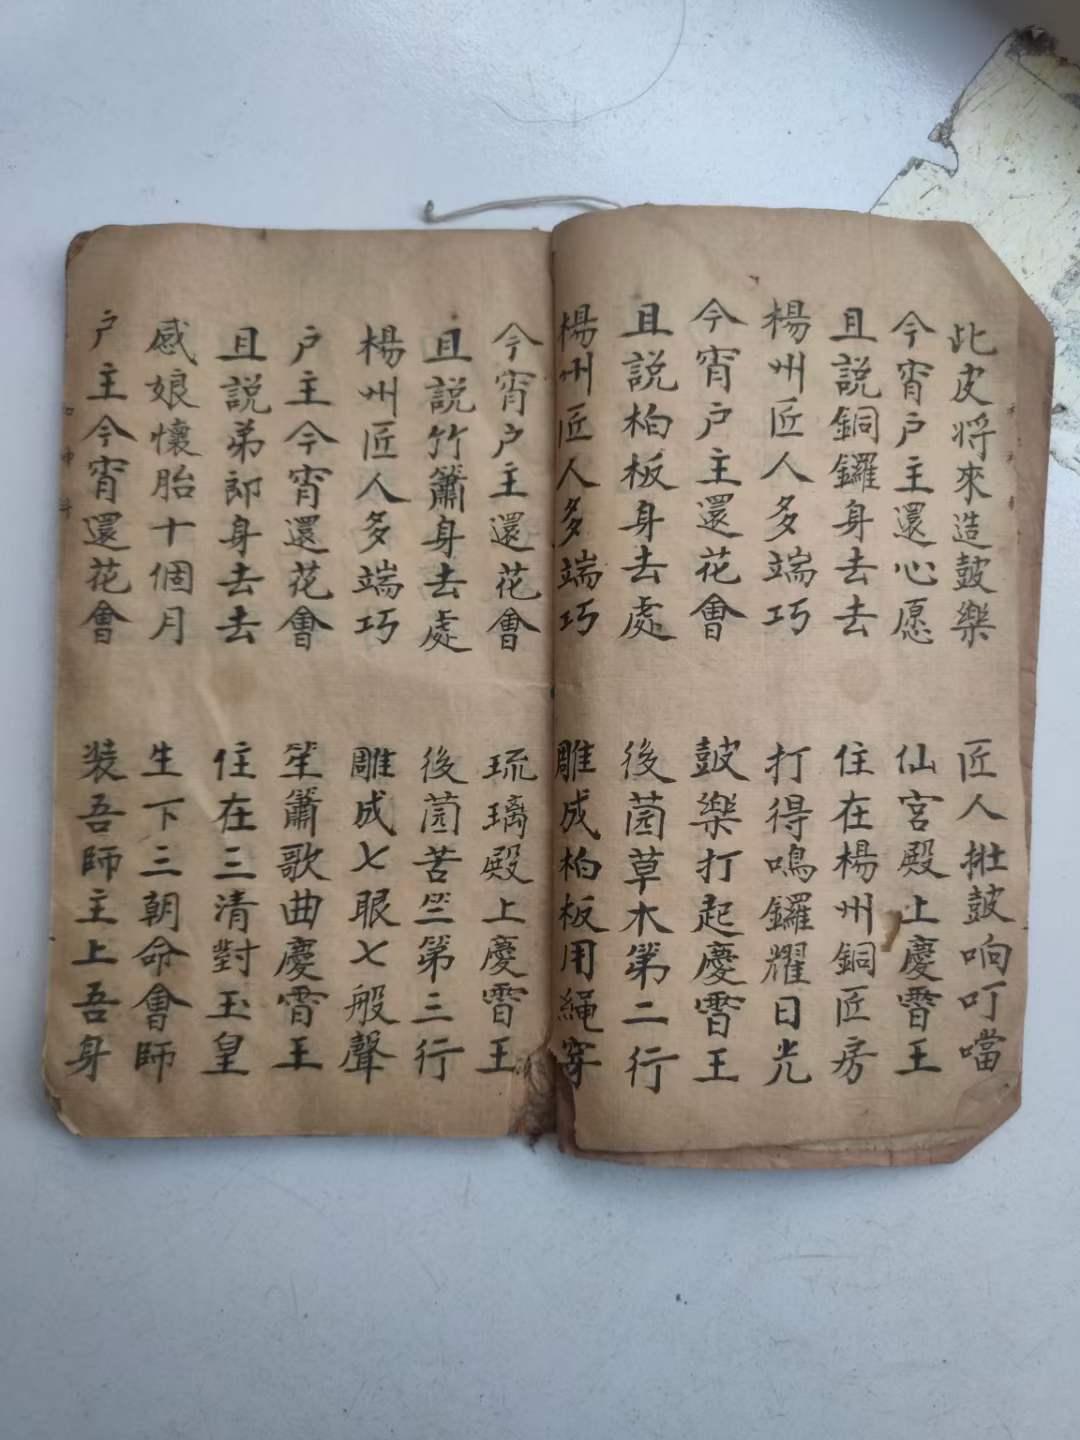 此皮将來造鼓樂 匠人扗鼓响叮噹
今宵户主還心愿 仙宮殿上慶霄王
且説銅鑼身去去 住在楊州銅匠房
楊州匠人多端巧 打得鳴鑼耀日光
今宵户主還花會 鼓樂打起慶霄王
且説柏板身去處 後园草木第二行
楊州匠人多端巧 雕成柏板用繩穿
今宵户主還花會 琉璃殿上慶霄王
且説竹簫身去處 後园苦竺第三行
楊州匠人多端巧 雕成七眼七般聲
户主今宵還花會 笙簫歌曲慶霄王
且説弟郎身去去 住在三清對玉皇
感娘懷胎十個月 生下三朝命會師
户主今宵還花會 装吾師主上吾身